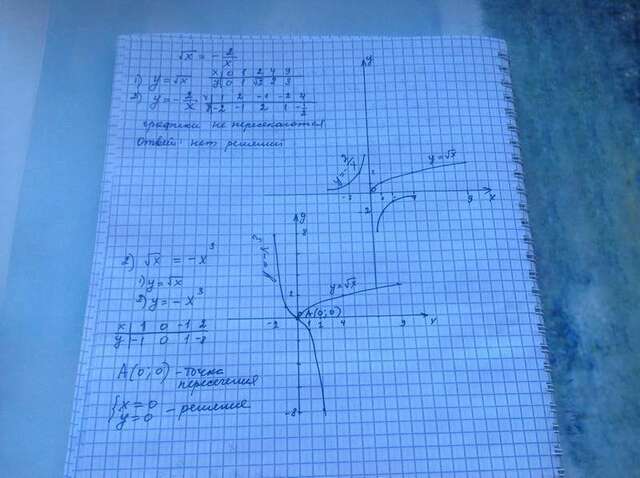 √x = -2/x
1) y = √x
x 0 1 2 4 9
y 0 1 √2 2 3
2) y = -2/x
x 1 2 -1 -2 4
y -2 -1 2 1 -1/2
графики не пересекаются
ответ: нет решений
y
y = √x
-2
-2
9
x
2) √x = -x³
1) y = √x
2) y = -x³
x 1 0 -1 2
y -1 0 1 -8
A(0;0) - точка
пересечения
{x = 0
y = 0 - решение
y
8
y = -x³
y = √x
2
A(0;0)
-2
1 2 4 9 x
-8